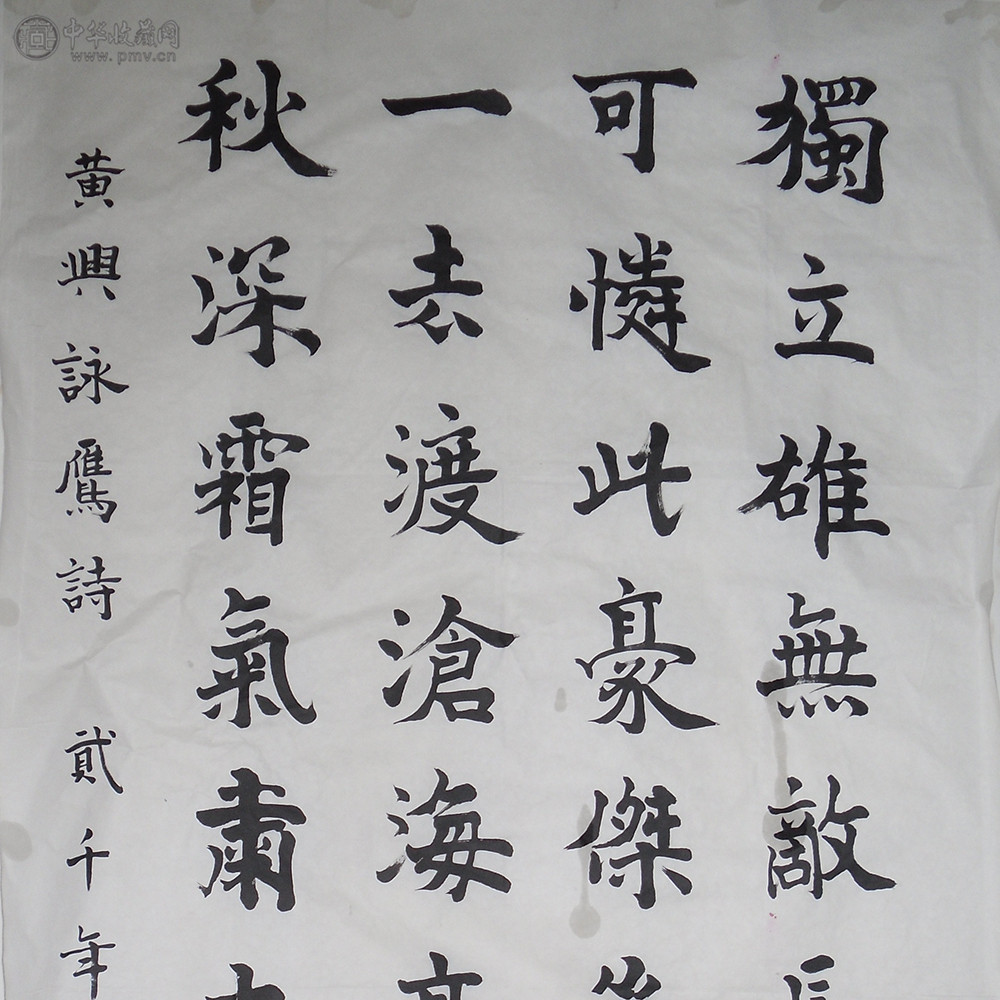 獨立雄無敵長
可憐此豪傑
一去渡滄海
秋深霜氣肅
黃興詠鷹詩 貳千年
中华收藏网
www.pmv.cn